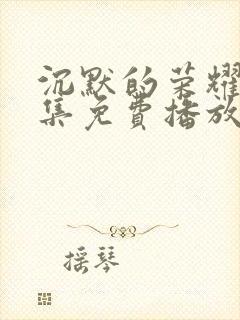 沉默的荣耀
集免费播放
摇琴